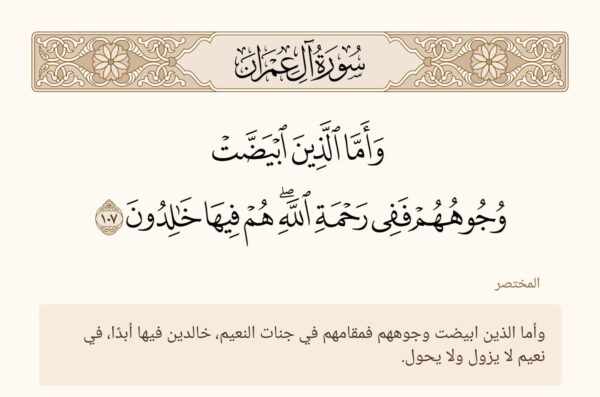 سُورَةُ آلِ عِمْرَان
وَأَمَّا ٱلَّذِينَ ٱبۡيَضَّتۡ
وُجُوهُهُمۡ فَفِي رَحۡمَةِ ٱللَّهِۖ هُمۡ فِيهَا خَٰلِدُونَ ١٠٧
المختصر
وأما الذين ابيضت وجوههم فمقامهم في جنات النعيم، خالدين فيها أبدًا، في
نعيم لا يزول ولا يحول.